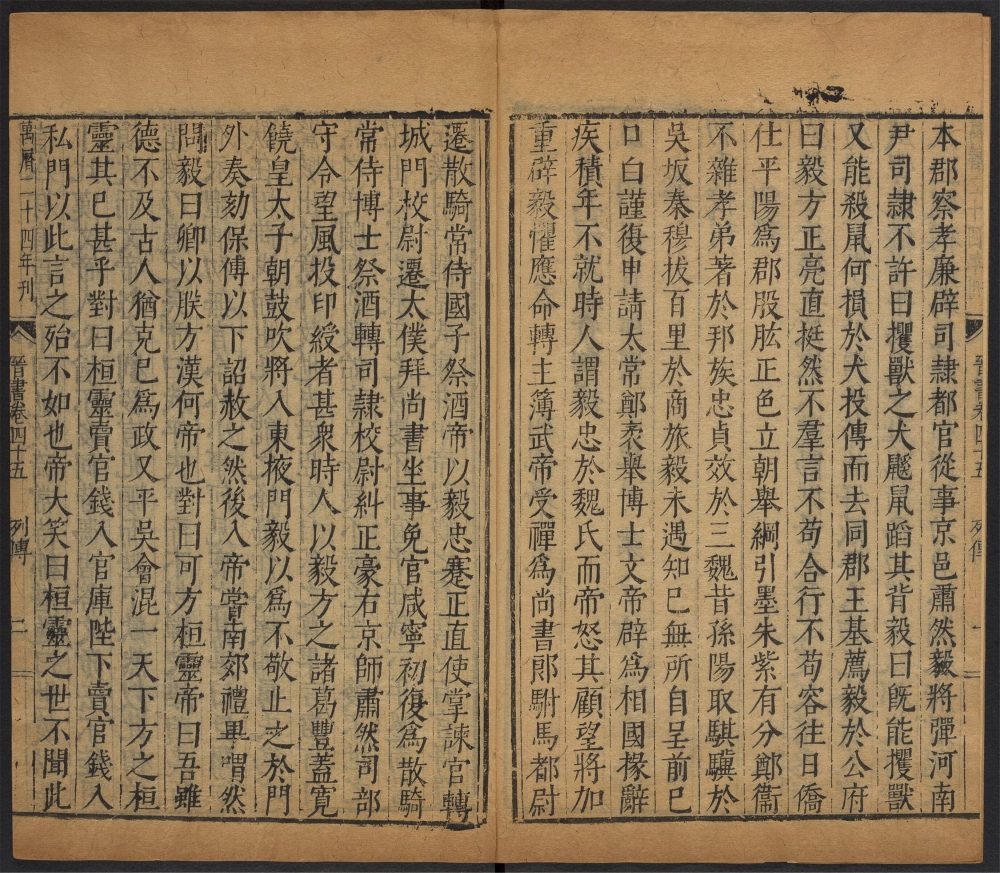 本郡察孝廉辟司隷都官從事京邑肅然毅將彈河南
尹司隷不許曰攫獸之犬鼷鼠蹈其背毅曰旣能攫獸
又能殺鼠何損於犬投傳而去同郡王基薦毅於公府
曰毅方正亮直挺然不羣言不苟合行不苟容往日僑
仕平陽爲郡股肱正色立朝舉綱引墨朱紫有分鄭衞
不雜孝弟著於邦族忠貞效於三魏昔孫陽取騏驥於
吳坂秦穆拔百里於商旅毅未遇知已無所自呈前已
口白謹復申請太常鄭袤舉博士文帝辟爲相國掾辭
疾積年不就時人謂毅忠於魏氏而帝怒其顧望將加
重辟毅懼應命轉主簿武帝受禪爲尚書郎駙馬都尉
晉書卷四十五 列傳 一
遷散騎常侍國子祭酒帝以毅忠蹇正直使掌諫官轉
城門校尉遷太僕拜尚書坐事免官咸寧初復爲散騎
常侍博士祭酒轉司隷校尉糾正豪右京師肅然司部
守令望風投印綬者甚衆時人以毅方之諸葛豐蓋寬
饒皇太子朝鼓吹將入東掖門毅以爲不敬止之於門
外奏劾保傅以下詔赦之然後入帝嘗南郊禮畢喟然
問毅曰卿以朕方漢何帝也對曰可方桓靈帝曰吾雖
德不及古人猶克已爲政又平吳會混一天下方之桓
靈其已甚乎對曰桓靈賣官錢入官庫陛下賣官錢入
私門以此言之殆不如也帝大笑曰桓靈之世不聞此
萬曆二十四年刊 晉書卷四十五 列傳 二